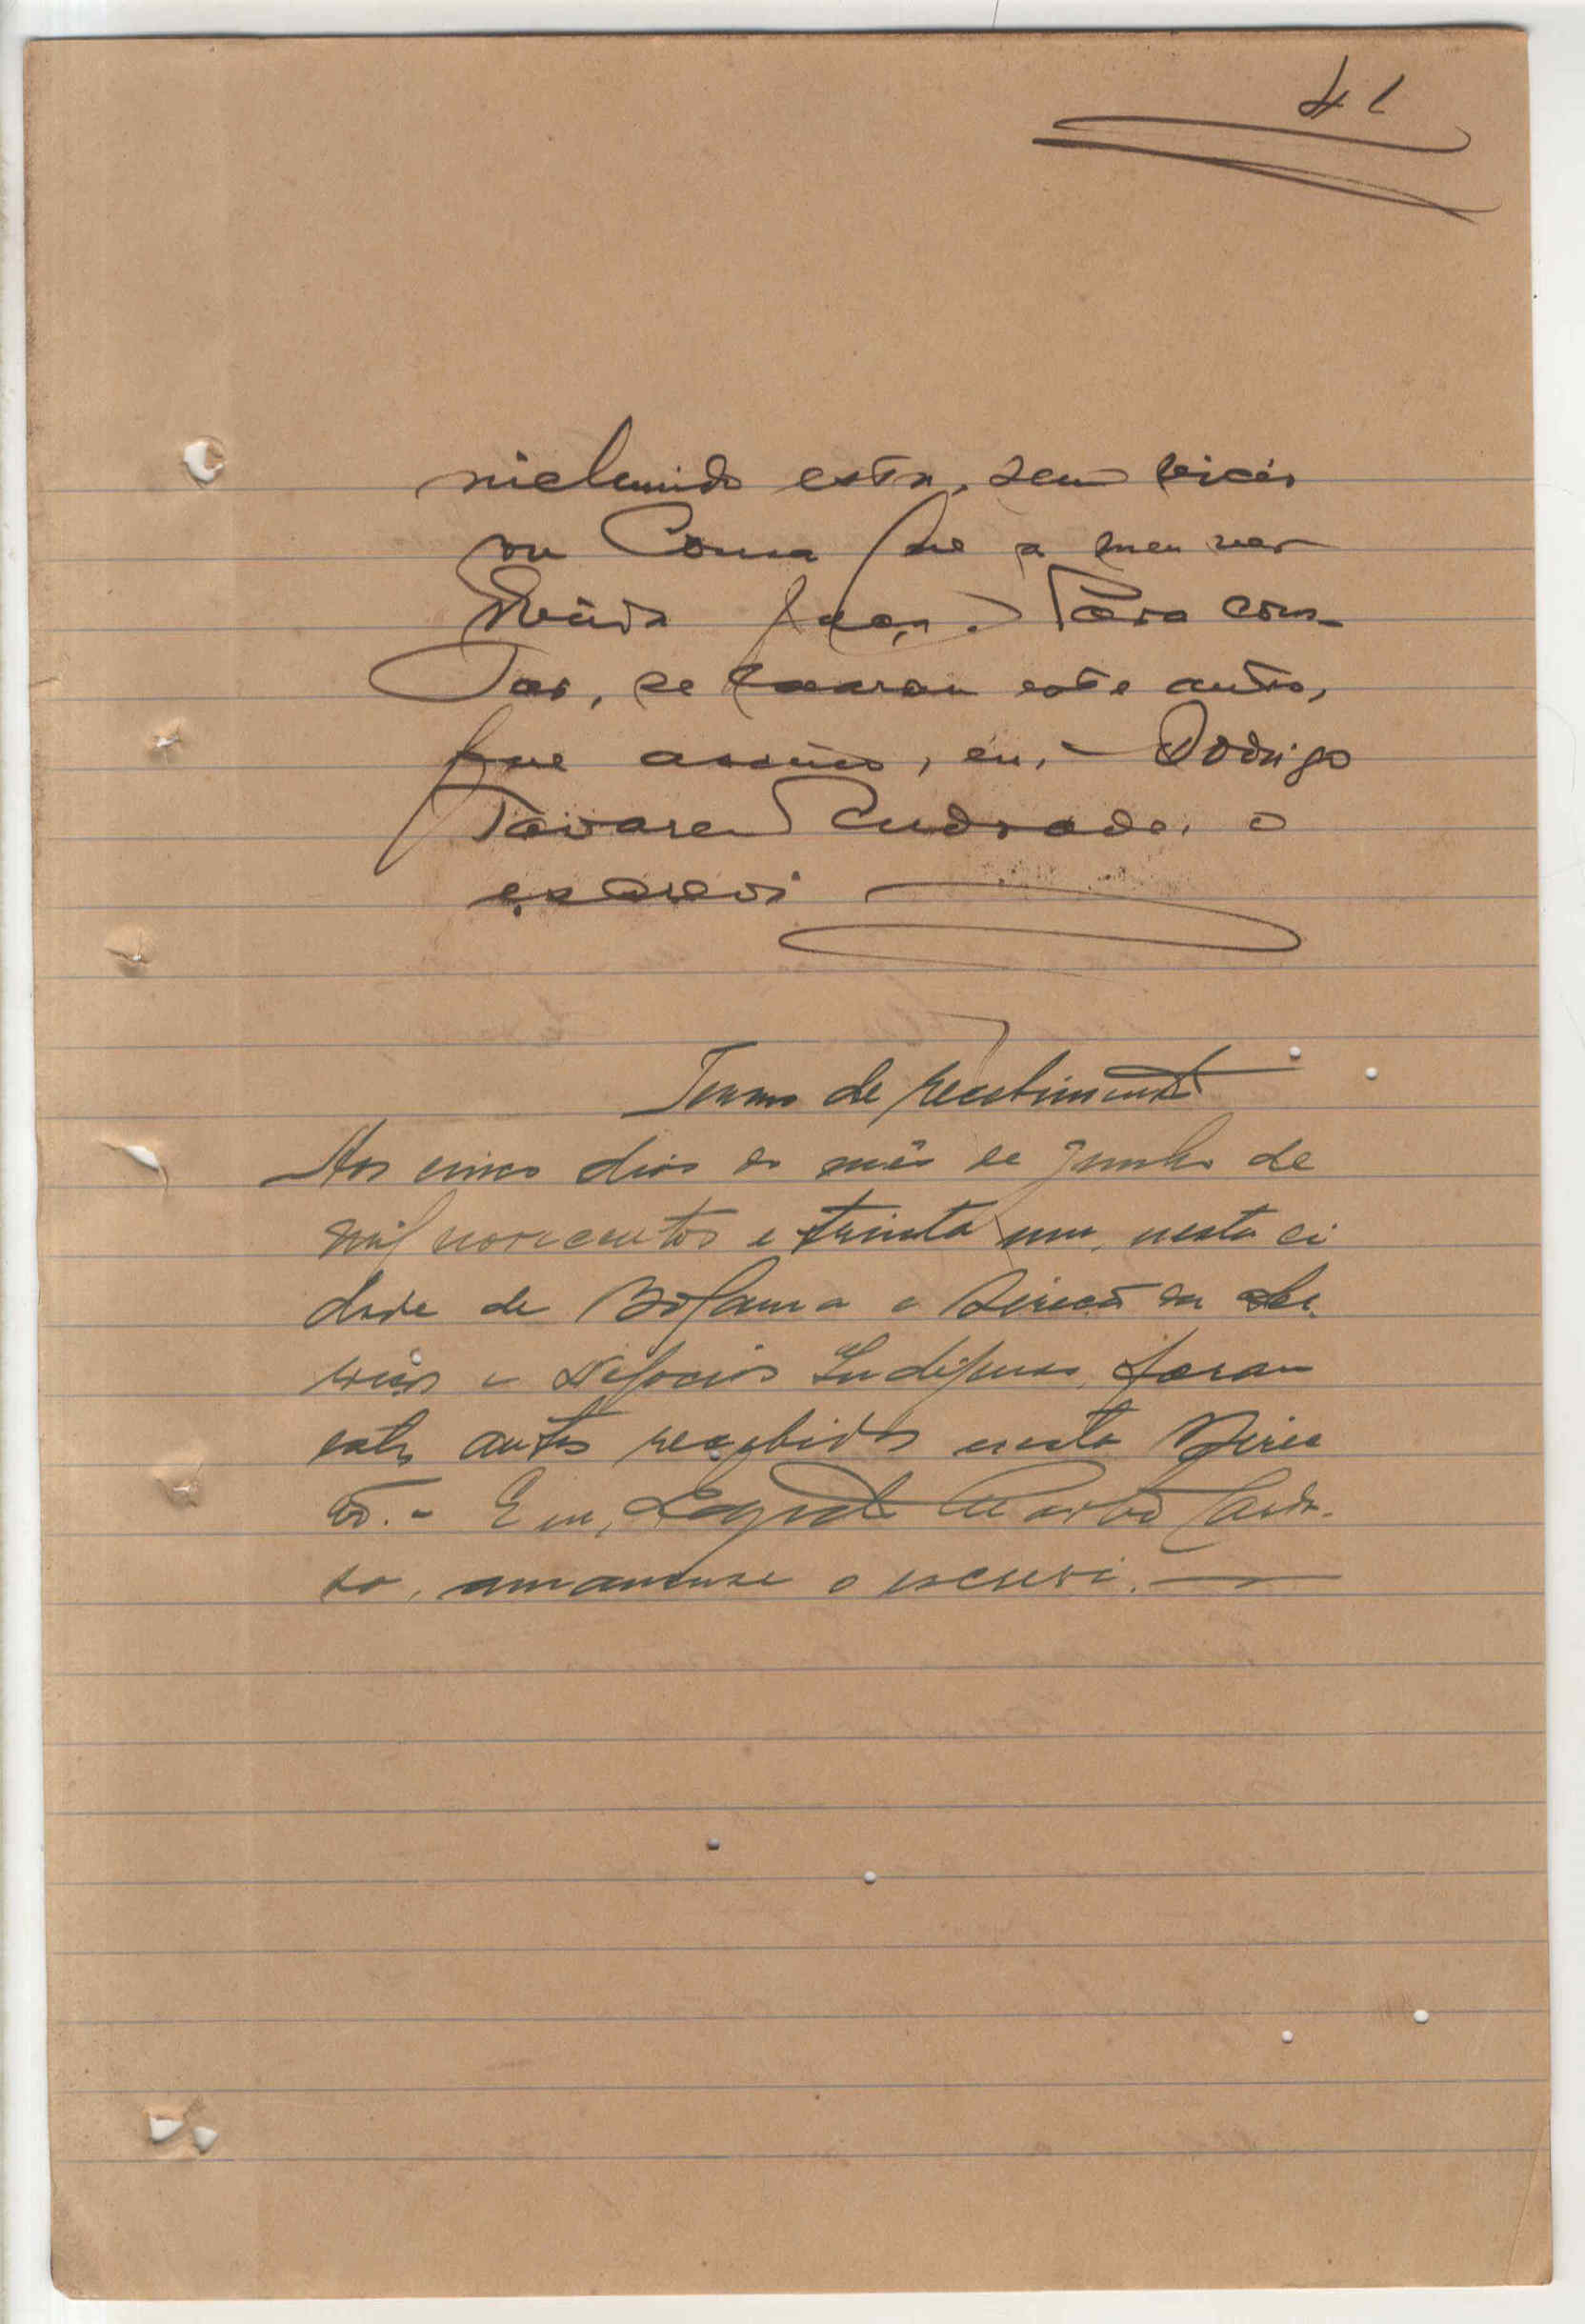 41
incluindo esta, sem vicios
ou cousa que a meu ver
duvida faça. Para cons-
tar, se lavrou este auto,
que assino, eu, - Rodrigo
Tavares Andrade, o
escrevi
Termo de recebimento
Aos cinco dias do mês de Junho de
mil novecentos e trinta um, nesta ci
dade de Bolama e Direcção dos Ser
viços e Negocios Indígenas, foram
estes autos recebidos nesta Direc
ção. - E eu, Barbosa Cardo-
so, amanuense o escrevi.